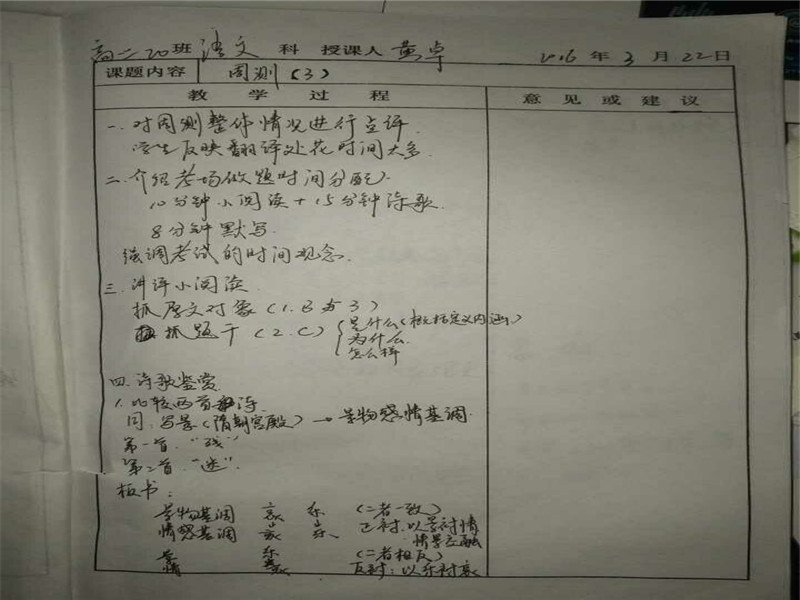 高二20班 语文 科 授课人 黄卓 2016年3月22日
课题内容 周测(3)
教学过程 意见或建议
一.对周测整体情况进行点评.
学生反映翻译处花时间太多.
二.介绍考场做题时间分配.
10分钟小阅读+15分钟诗歌
8分钟默写.
强调考试的时间观念.
三.讲评小阅读
抓原文对象(1.B与3)
抓题干(2.C) {是什么(概括定义内涵)
为什么.
怎么样
四.诗歌鉴赏
1.比较两首诗.
同:写景(隋朝宫殿)→景物感情基调.
第一首."残"
第二首."迷".
板书:
景物基调 哀 乐 (二者一致)
情感基调 哀 乐 正衬:以景衬情
情景交融
景 乐 (二者相反)
情 哀 反衬:以乐衬哀